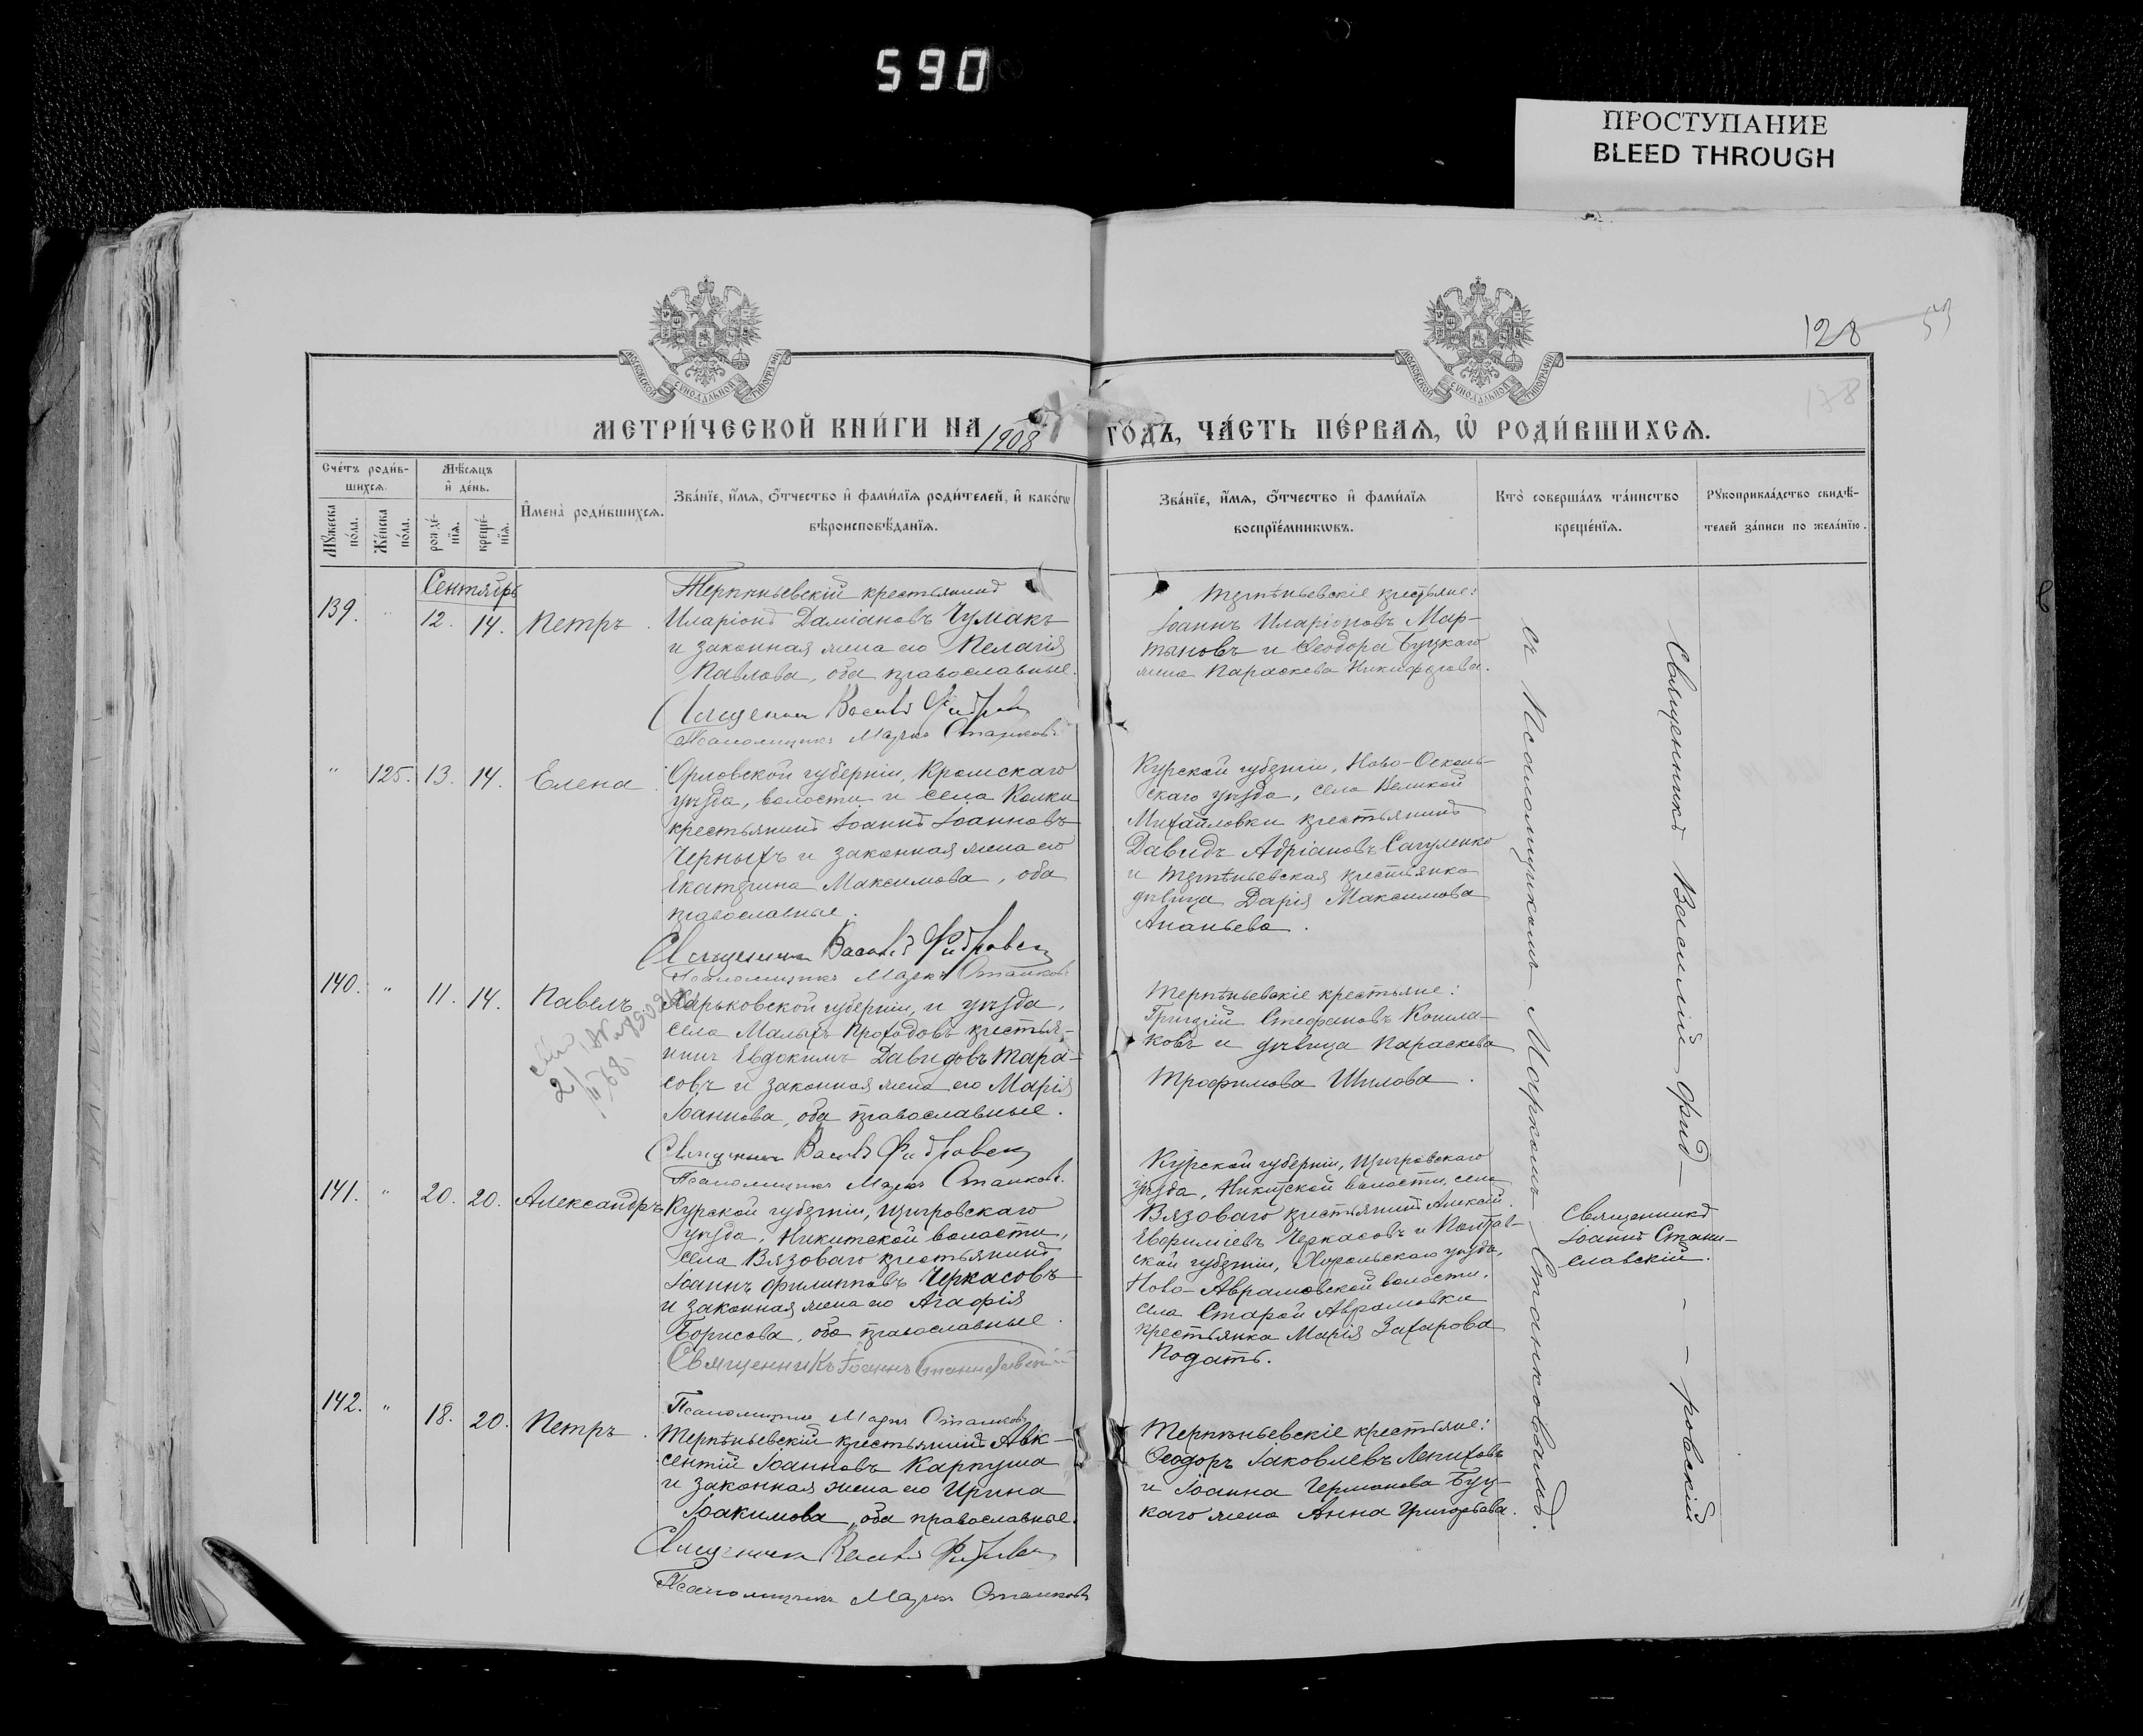 590
ПРОСТУПАНИЕ
BLEED THROUGH
128
МЕТРИ́ЧЕСКОЙ КНИ́ГИ НА 1908 ГО́ДЪ, ЧА́СТЬ ПЕ́РВАѦ, Ѡ҆ РОДИ́ВШИХСѦ.
Сче́тъ роди́в-
шихсѧ.
Мѣ́сѧцъ
и҆ де́нь.
Мꙋ́жеска
по́ла.
Же́нска
по́ла.
рожде́-
нїѧ.
креще́-
нїѧ.
И҆мена̀ роди́вшихсѧ.
Зва́нїе, и҆́мѧ, ѻ҆́тчество и҆ фами́лїѧ роди́телей, и҆ како́гѡ
вѣроисповѣ́данїѧ.
Зва́нїе, и҆́мѧ, ѻ҆́тчество и҆ фами́лїѧ
воспрїе́мникѡвъ.
Кто̀ соверша́лъ та́инство
креще́нїѧ.
Рꙋкоприкла́дство свидѣ́-
телей за́писи по жела́нїю.
Сентябрь
139. " 12. 14. Петръ.
Терпѣньевскій крестьянинъ
Иларіонъ Даміановъ Чумакъ
и законная жена его Пелагія
Павлова, оба православные.
Священникъ Василій
Псаломщикъ Маркъ Станковъ
Терпѣньевскіе крестьяне:
Іоаннъ Иларіоновъ Мар-
тыновъ и Ѳеодора Буцкаго
жена Параскева Никифорова.
" 125. 13. 14. Елена.
Орловской губерніи, Кромскаго
уѣзда, волости и села Колки
крестьянинъ Іоаннъ Іоанновъ
Черныхъ и законная жена его
Екатерина Максимова, оба
православные.
Священникъ Василій
Псаломщикъ Маркъ Станковъ
Курской губерніи, Ново-Осколь-
скаго уѣзда, села Великой
Михайловки крестьянинъ
Давидъ Адріановъ Сагуленко
и Терпѣньевская крестьянка
дѣвица Дарія Максимова
Ананьева.
140. " 11. 14. Павелъ.
Харьковской губерніи, и уѣзда,
села Малыхъ Проходовъ крестья-
нинъ Евдокимъ Давидовъ Тара-
совъ и законная жена его Марія
Іоаннова, оба православные.
Священникъ Василій
Псаломщикъ Маркъ Станковъ.
Терпѣньевскіе крестьяне:
Григорій Стефановъ Кошла-
ковъ и дѣвица Параскева
Трофимова Шилова.
141. " 20. 20. Александръ
Курской губерніи, Щигровскаго
уѣзда, Никитской волости,
села Вязоваго крестьянинъ
Іоаннъ Филипповъ Черкасовъ
и законная жена его Агафія
Борисова, оба православные.
Священникъ Іоаннъ Станиславскій
Псаломщикъ Маркъ Станковъ
Курской губерніи, Щигровскаго
уѣзда, Никитской волости, села
Вязоваго крестьянинъ Алексій
Евфиміевъ Черкасовъ и Полтав-
ской губерніи, Хорольскаго уѣзда,
Ново-Аврамовской волости,
села Старой Аврамовки
крестьянка Марія Захарова
Подать.
Священникъ
Іоаннъ Стани-
славскій.
142. " 18. 20. Петръ.
Терпѣньевскій крестьянинъ Авк-
сентій Іоанновъ Карпуша
и законная жена его Ирина
Іоакимова, оба православные.
Священникъ Василій
Псаломщикъ Маркъ Станковъ
Терпѣньевскіе крестьяне:
Ѳеодоръ Іаковлевъ Лепиховъ
и Іоанна Германова Буц-
каго жена Анна Григорьева.
Священникъ Василій Фид-
ровскій
съ Псаломщикомъ Маркомъ Станковымъ.